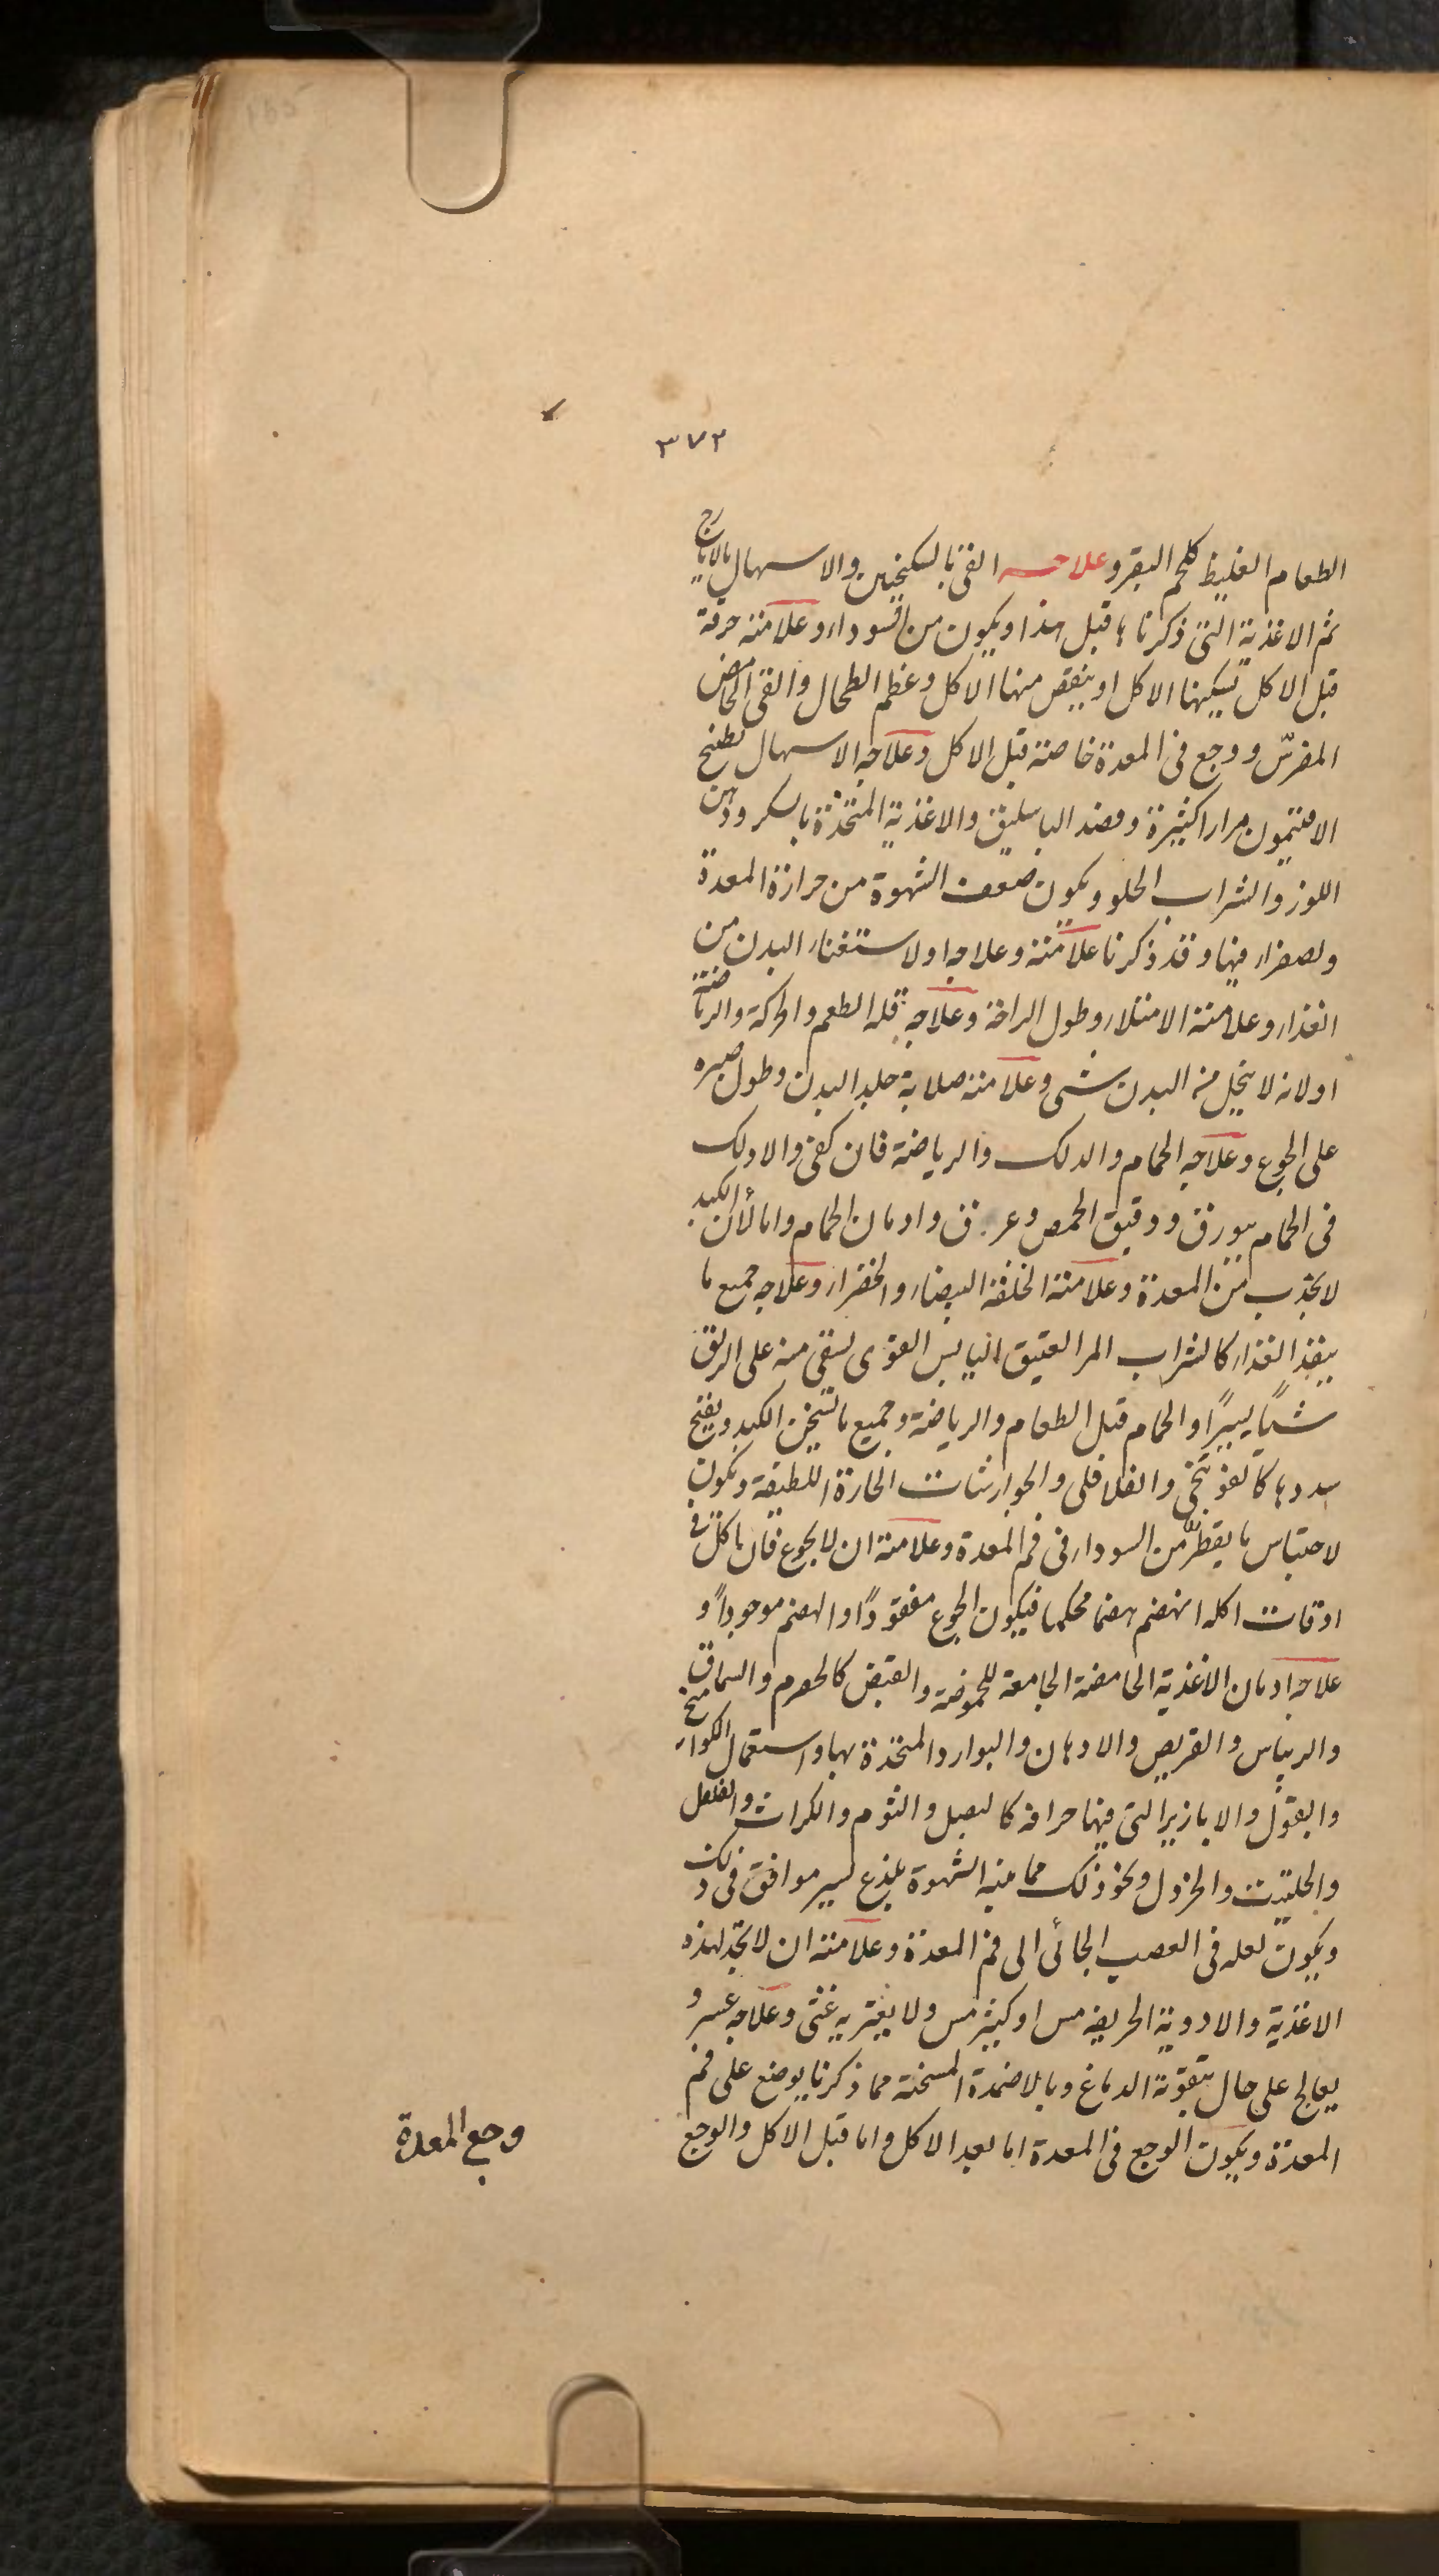 ٣٧٢
الطعام الغليظ كلحم البقر وعلاجه القئ بالسكنجبين والاسهال بالايارج
ثم الاغذية التى ذكرناها قبل هذا ويكون من السوداء وعلامته حرقة
قبل الاكل تسكينها الاكل او ينقص منها الاكل وعظم الطحال والقئ الحامض
المضرس ووجع فى المعدة خاصة قبل الاكل وعلاجه الاسهال بطبيخ
الافتيمون مرارا كثيرة وفصد الباسليق والاغذية المتخذة بالسكر ودهن
اللوز والشراب الحلو ويكون ضعف الشهوة من حرارة المعدة
ولصفراء فيها وقد ذكرنا علامته وعلاجه او لاستغناء البدن من
الغذاء وعلامته الامتلاء وطول الراحة وعلاجه قلة الطعم والحركة والرياضة
او لانه لا يتحلل من البدن شى وعلامته صلابة جلد البدن وطول صبره
على الجوع وعلاجه الحمام والدلك والرياضة فان كفى والا دلك
فى الحمام ببورق ودقيق الحمص وعرق وادمان الحمام واما لأن الكبد
لا يجذب من المعدة وعلامته الخلفة البيضاء والخضراء وعلاجه جميع ما
ينفذ الغذاء كالشراب المر العتيق اليابس القوى يسقى منه على الريق
شيًا يسيرًا والحمام قبل الطعام والرياضة وجميع ما يسخن الكبد ويفتح
سددها كالفوتنجى والفلافلى والجوارشنات الحارة اللطيفة ويكون
لاحتباس ما يقطر من السوداء فى فم المعدة وعلامته ان لا يجوع فان اكل فى
اوقات اكله انهضم هضما محكما فيكون الجوع مفقودًا والهضم موجودًا و
علاجه ادمان الاغذية الحامضة الجامعة للحموضة والقبض كالحصرم والسماق
والريباس والقريص والادهان والبوارد المتخذة بها واستعمال الكوامخ
والبقول والابازير التى فيها حرافة كالبصل والثوم والكراث والفلفل
والحلتيت والخردل ونحو ذلك مما ينبه الشهوة بلذع يسير موافق فى ذلك
ويكون لعلة فى العصب الجائى الى فم المعدة وعلامته ان لا يجد لهذه
الاغذية والادوية الحريفة مس او كثير مس ولا يعتريه غثى وعلاجه عسر و
يعالج على حال بتقوية الدماغ وبالاضمدة المسخنة مما ذكرنا يوضع على فم
المعدة ويكون الوجع فى المعدة اما بعد الاكل واما قبل الاكل والوجع
وجع المعدة